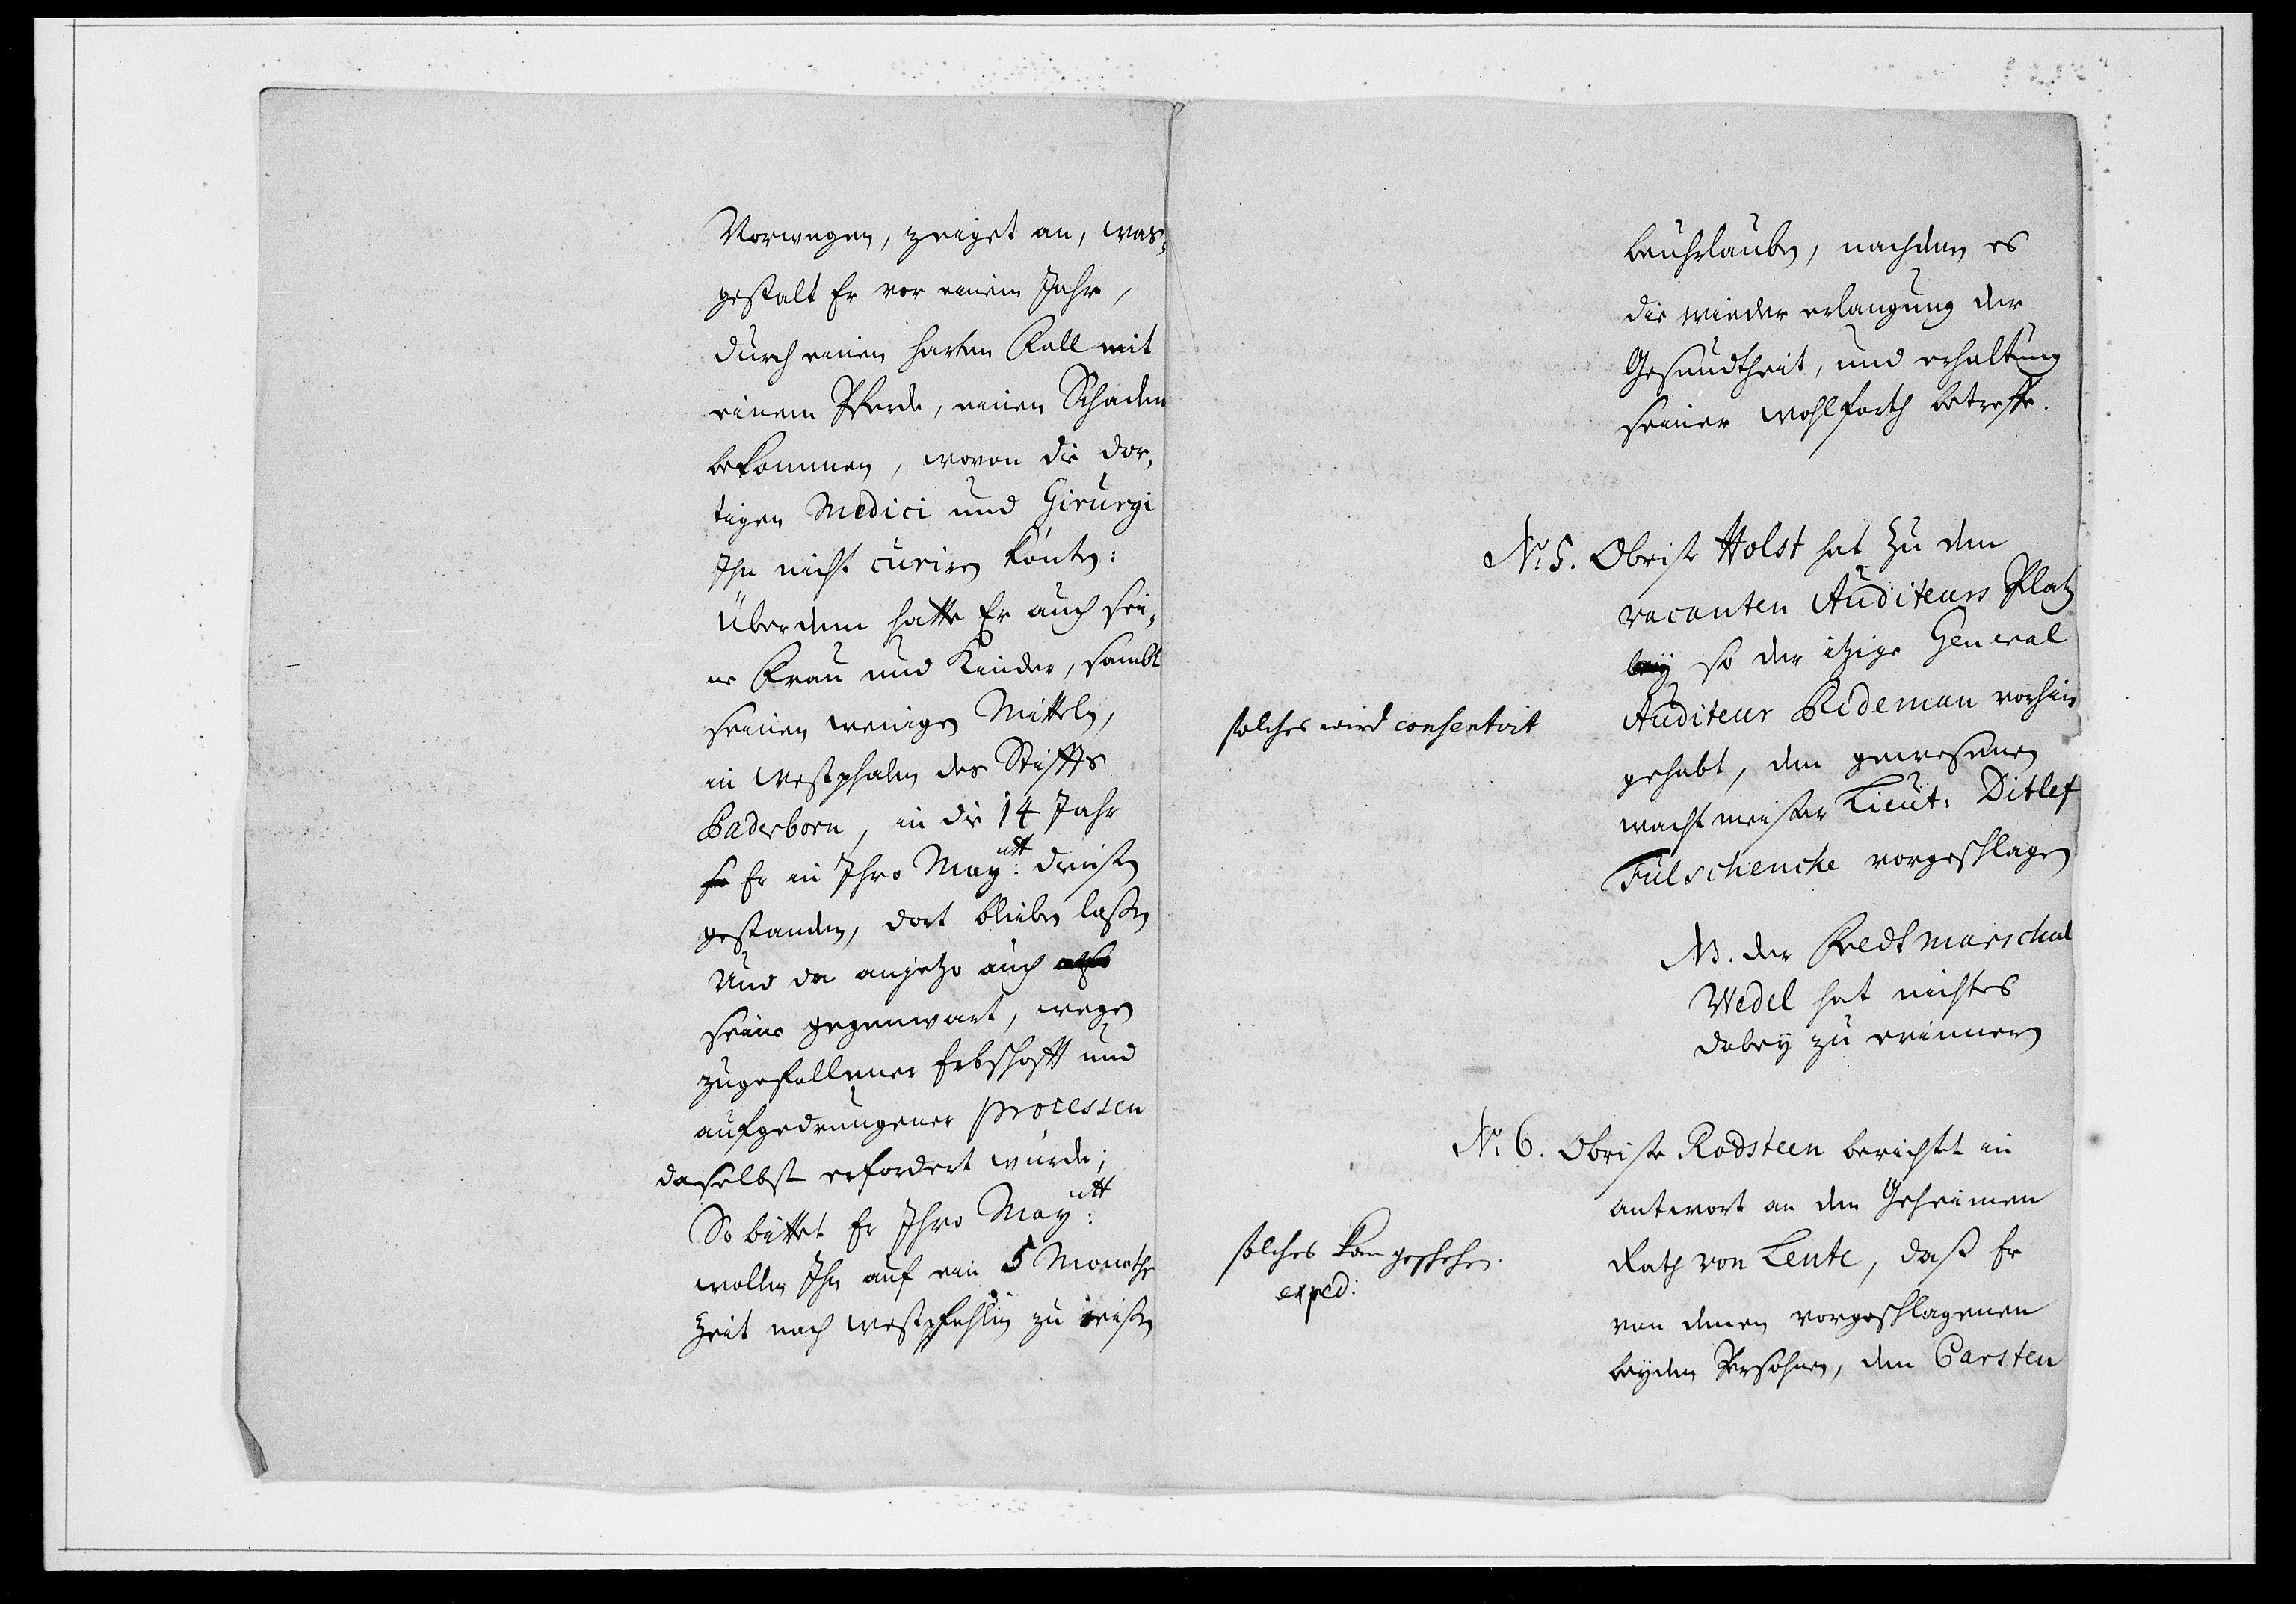 Norwegen, zeiget an, was-
gestalt Er vor einem Jahr,
durch einen harten Fall mit
einem Pferde, einen Schaden
bekommen, wovon die dor-
tigen Medici und Girurgi
Ihn nicht curiren könten:
Überdem hatte Er auch sei-
ne Frau und Kinder, sambt
seinen wenigen Mitteln,
in Westphalen des Stiffts
Paderborn, in die 14 Jahr
so Er in Ihro Maytt: diensten
gestanden, dort bleiben lassen
Und da anjetzo auch also
seine gegenwart, wegen
zugefallener Erbschafft und
aufgedrungener processen
daselbst erfordert würde;
So bittet Er Ihro Maytt:
wollen Ihn auf ein 5 Monathe
Zeit nach Westpfahlen zu reisen
beuhrlauben, nachdem es
die wieder erlangung der
Gesundtheit, und erhaltung
seiner wohlfarth betreffe.
No. 5. Obrist Holst hat zu dem
vacanten Auditeurs Platz
bey so der itzige General
Auditeur Bideman vorhin
gehabt, den gewesenen
wachtmeister Lieut: Ditlef
Fülschenche vorgeschlagen
solches wird consentirt
NB. der Feldtmarschal
Wedel hat nichtes
dabey zu erinnern
No. 6. Obriste Rodsteen berichtet in
antwort an den Geheimen
Rath von Lente, daß Er
von denen vorgeschlagenen
beyden Persohnen, den Carsten
solches kan geschehen.
exped: